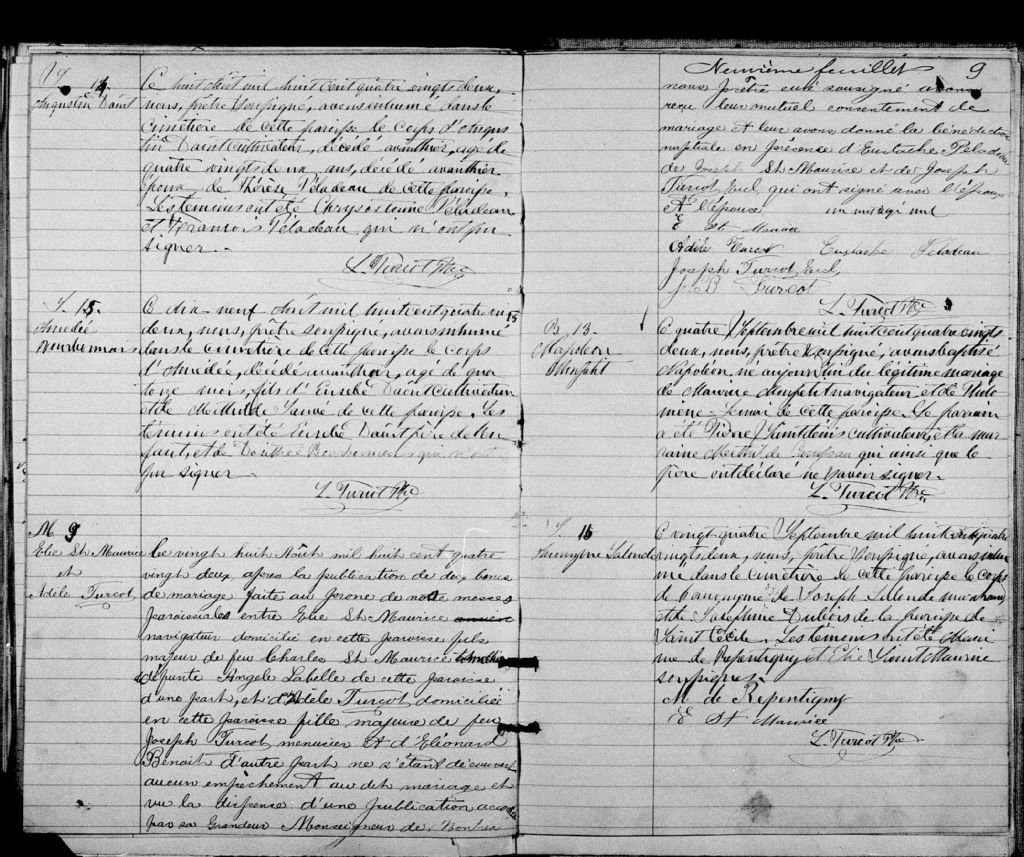 Augustin Daust
Ce huit Août mil huit cent quatre vingt deux,
nous, prêtre soussigné, avons inhumé dans le
cimetière de cette paroisse le corps d'Augus
tin Daust cultivateur, décédé avanthier, agé de
quatre vingt deux ans, décédé avanthier
époux de Thérèse Péladeau de cette paroisse.
Les témoins ont été Chrysostome Péladeau
et François Péladeau qui n'ont pu
signer.
L. Turcot Ptre
S. 15.
Amédée
Ce dix neuf Août mil huit cent quatre vingt
deux, nous, prêtre soussigné, avons inhumé
dans le cimetière de cette paroisse le corps
d'Amédée, décédé avanthier, agé de qua
torze mois, fils d'Eusèbe Daust cultivateur
et de Mathilde Sauvé de cette paroisse. Les
témoins ont été Eusèbe Daust père de l'en
fant, et de qui n'ont
pu signer
L. Turcot Ptre
M. 9
Elie St Maurice
et
Adèle Turcot
Le vingt huit Août mil huit cent quatre
vingt deux, après la publication de deux bancs
de mariage faite au prone de notre messes
paroissiales entre Elie St Maurice
navigateur domicilié en cette paroisse fils
majeur de feu Charles St Maurice
défunte Angele Labelle de cette paroisse
d'une part, et d'Adèle Turcot domiciliée
en cette paroisse fille majeure de feu
Joseph Turcot menuisier et d'Eléonard
Benoit d'autre part ne s'étant découvert
aucun empêchement au dit mariage et
vu la dispense d'une publication accordée
par sa Grandeur Monseigneur de Montréal
Neuvième feuillet 9
nous prêtre curé soussigné avons
reçu leur mutuel consentement de
mariage et leur avons donné la bénédiction
nuptiale en présence d'Eustache Peladeau
de Joseph St Maurice et de Joseph
Turcot qui ont signé avec l'époux
et l'épouse un mot rayé nul
E St Maurice
Adèle Turcot Eustache Peladeau
Joseph Turcot
J. B Turcot
L. Turcot Ptre
B. 13.
Napoléon
Ce quatre Septembre mil huit cent quatre vingt
deux, nous, prêtre soussigné, avons baptisé
Napoléon né aujourd'hui du légitime mariage
de Maurice navigateur et de Philo
mène de cette paroisse. Le parrain
a été Pierre Saint denis cultivateur, et la mar
raine qui ainsi que le
père ont déclaré ne savoir signer.
L. Turcot Ptre
S. 16
Lalonde
Ce vingt quatre Septembre mil huit cent quatre
vingt deux, nous, prêtre soussigné, avons inhu
mé dans le cimetière de cette paroisse le corps
de de Joseph Lalonde
et de Joséphine Dubois de la paroisse de
Saint Cécile. Les témoins ont été Maxi
me de Repentigny et Elie Saint Maurice
soussignés.
M de Repentigny
E St Maurice
L. Turcot Ptre